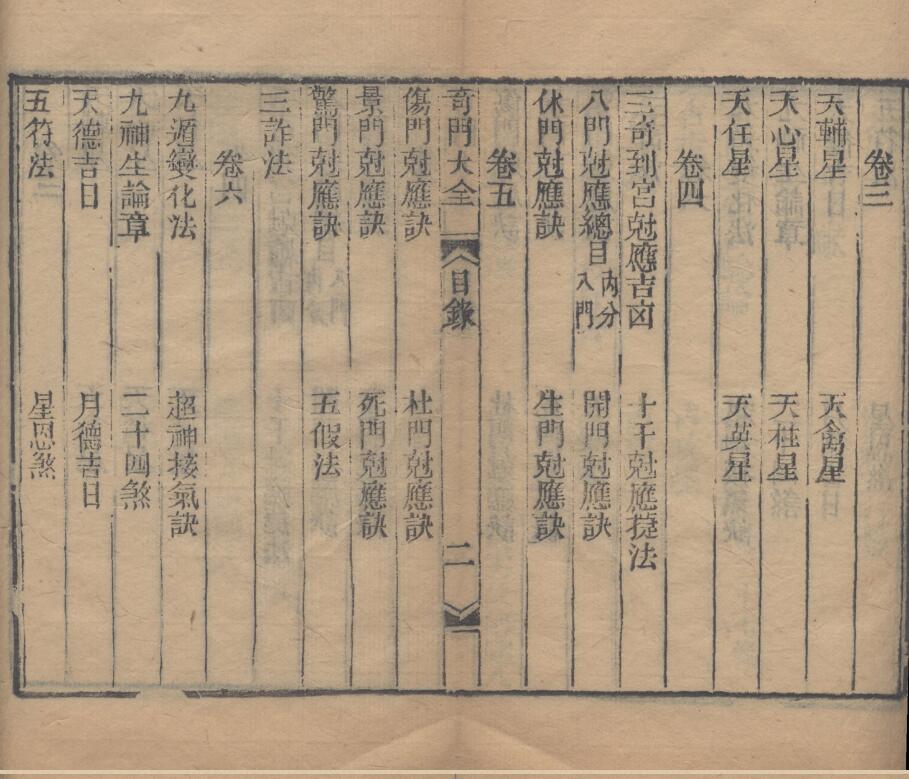 卷三
天輔星 天禽星
天心星 天柱星
天任星 天英星
卷四
三奇到宮尅應吉凶 十干尅應㨗法
八門尅應總目內分八門 開門尅應訣
休門尅應訣 生門尅應訣
卷五
奇門大全 目錄 二
傷門尅應訣 杜門尅應訣
景門尅應訣 死門尅應訣
驚門尅應訣 五假法
三詐法
卷六
九遁變化法 超神接氣訣
九神生論章 二十四煞
天德吉日 月德吉日
五符法 星恩煞